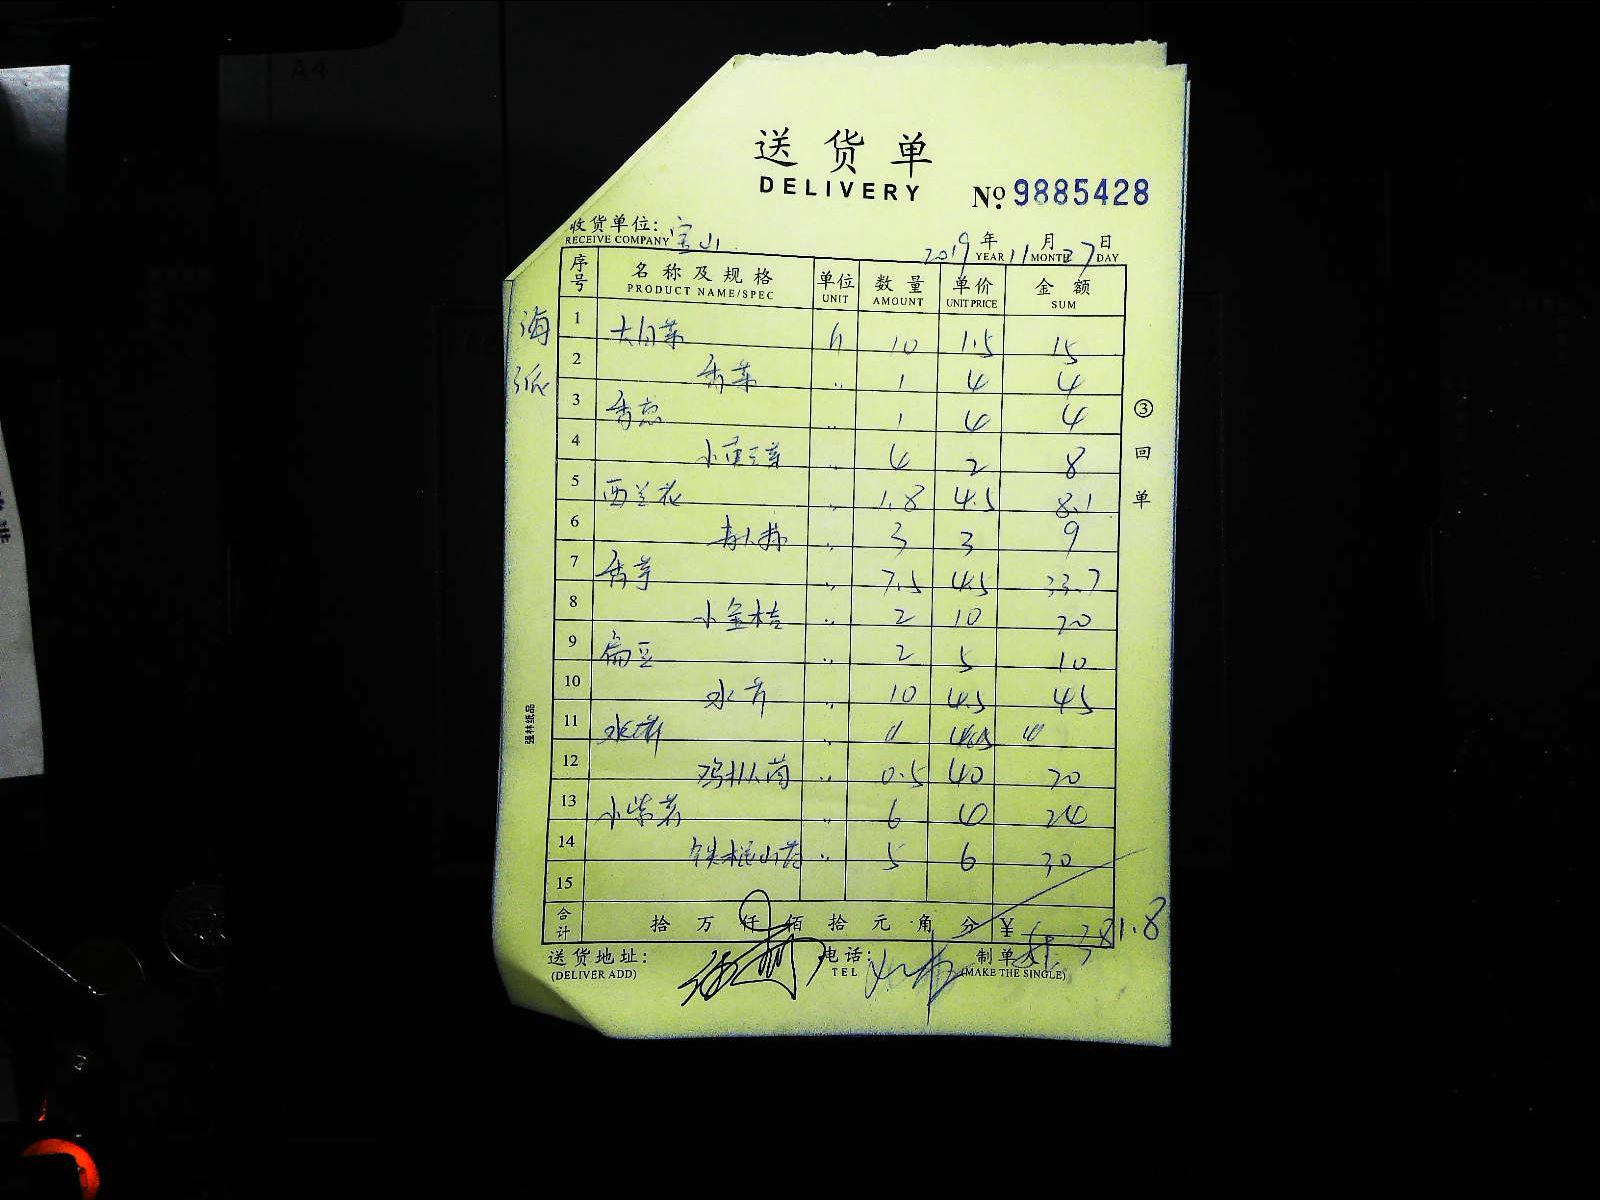 A4
送货单
DELIVERY
№ 9885428
收货单位: 宝山
RECEIVE COMPANY
2019 年 11 月 27 日
YEAR MONTH DAY
序号 名称及规格 单位 数量 单价 金额
PRODUCT NAME/SPEC UNIT AMOUNT UNIT PRICE SUM
海派
1 大白菜 斤 10 1.5 15
2 香菜 〃 1 4 4
3 香葱 〃 1 4 4
4 小黄豆芽 〃 4 2 8
5 西兰花 〃 1.8 4.5 8.1
6 〃 3 3 9
7 香芋 〃 7.5 4.5 33.7
8 小金桔 〃 2 10 20
9 扁豆 〃 2 5 10
10 水芹 〃 10 4.5 45
11 〃
12 鸡枞菌 〃 0.5 40 20
13 小紫薯 〃 6 4 24
14 铁棍山药 〃 5 6 30
15
合计 拾 万 仟 佰 拾 元 角 分 ¥
送货地址: 电话: 制单
(DELIVER ADD) TEL (MAKE THE SINGLE)
③ 回单
强林纸品